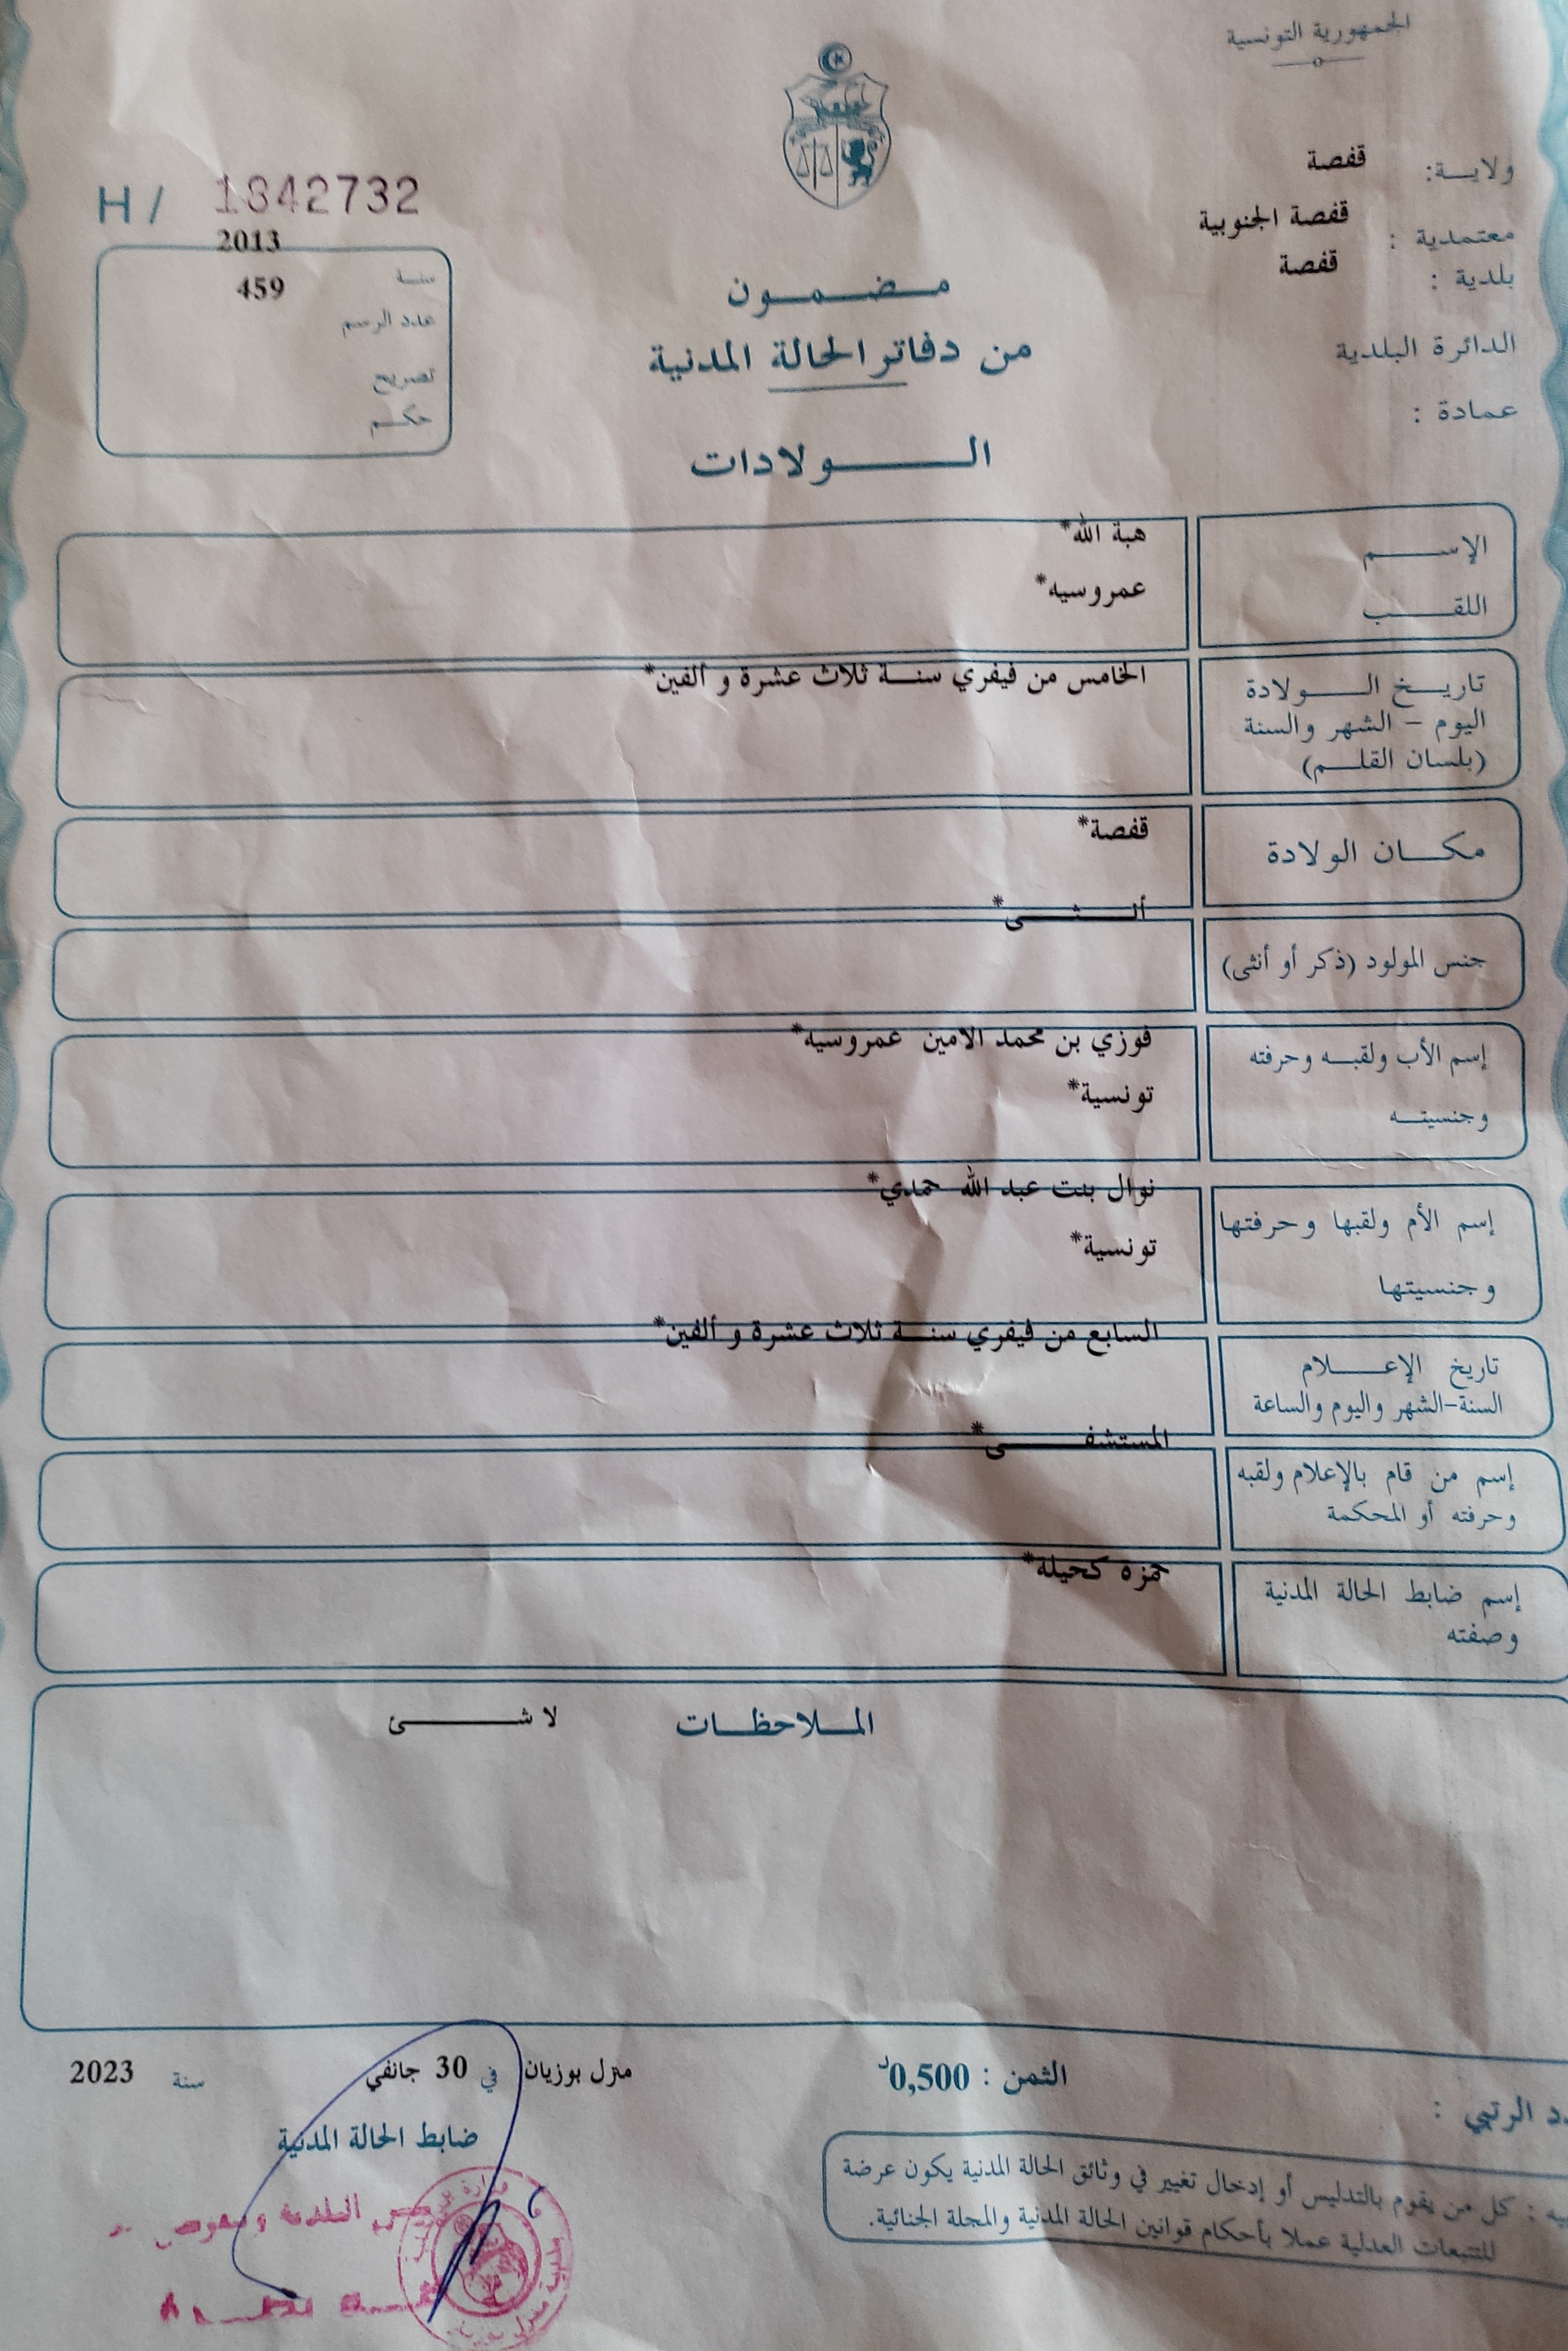 الجمهورية التونسية
ولاية: قفصة
معتمدية : قفصة الجنوبية
بلدية : قفصة
الدائرة البلدية
عمادة :
H / 1842732
سنة 2013
عدد الرسم 459
تصريح
حكم
مضمون
من دفاتر الحالة المدنية
الولادات
الإسم هبة الله*
اللقب عمروسيه*
تاريخ الولادة الخامس من فيفري سنة ثلاث عشرة و ألفين*
اليوم – الشهر والسنة
(بلسان القلم)
مكان الولادة قفصة*
جنس المولود (ذكر أو أنثى) أنثى*
إسم الأب ولقبه وحرفته فوزي بن محمد الامين عمروسيه*
وجنسيته تونسية*
إسم الأم ولقبها وحرفتها نوال بنت عبد الله حمدي*
وجنسيتها تونسية*
تاريخ الإعلام السابع من فيفري سنة ثلاث عشرة و ألفين*
السنة-الشهر واليوم والساعة
إسم من قام بالإعلام ولقبه المستشفى*
وحرفته أو المحكمة
إسم ضابط الحالة المدنية حمزة كحيلة*
وصفته
الملاحظات لا شئ
الثمن : 0,500د
منزل بوزيان في 30 جانفي سنة 2023
ضابط الحالة المدنية
الرتبي :
: كل من يقوم بالتدليس أو إدخال تغيير في وثائق الحالة المدنية يكون عرضة
للتتبعات العدلية عملا بأحكام قوانين الحالة المدنية والمجلة الجنائية.